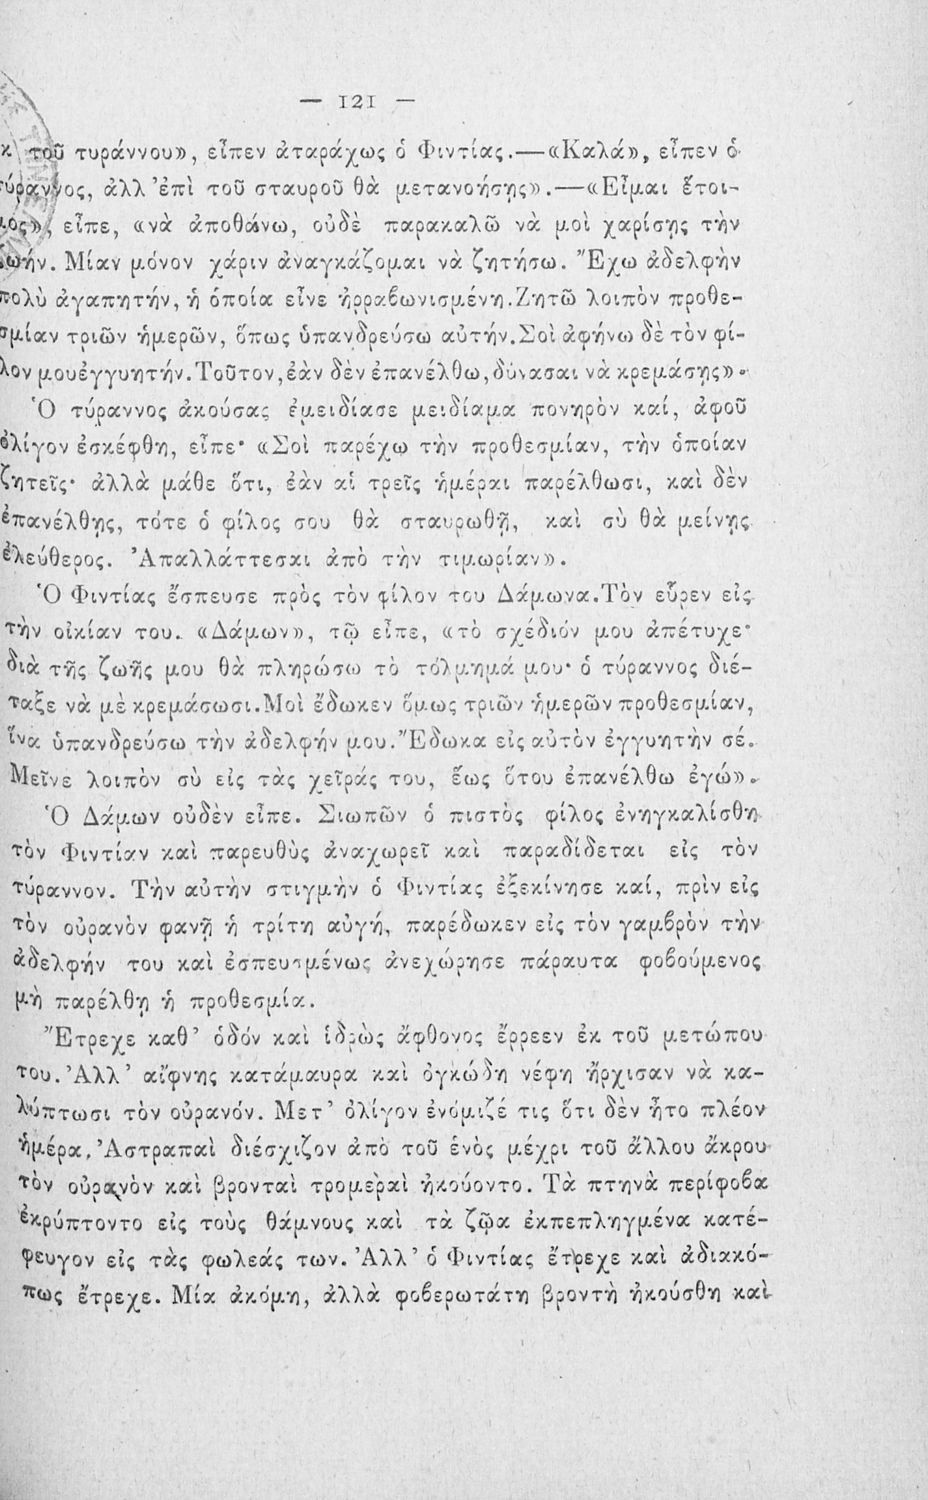 — 121 —
κ τοῦ τυράννου», εἶπεν ἀταράχως ὁ Φιντίας.—«Καλά», εἶπεν ὁ
τύραννος, ἀλλ᾿ἐπὶ τοῦ σταυροῦ θὰ μετανοήσῃς».—«Εἶμαι ἕτοι-
μος», εἶπε, «νὰ ἀποθάνω, οὐδὲ παρακαλῶ νὰ μοὶ χαρίσῃς τὴν
ζωήν. Μίαν μόνον χάριν ἀναγκάζομαι νὰ ζητήσω. Ἔχω ἀδελφὴν
πολὺ ἀγαπητήν, ἡ ὁποία εἶνε ἠρραβωνισμένη. Ζητῶ λοιπὸν προθε-
σμίαν τριῶν ἡμερῶν, ὅπως ὑπανδρεύσω αὐτήν. Σοὶ ἀφήνω δὲ τὸν φί-
λον μου ἐγγυητήν. Τοῦτον, ἐὰν δὲν ἐπανέλθω, δύνασαι νὰ κρεμάσῃς».
Ὁ τύραννος ἀκούσας ἐμειδίασε μειδίαμα πονηρὸν καί, ἀφοῦ
ὀλίγον ἐσκέφθη, εἶπε· «Σοὶ παρέχω τὴν προθεσμίαν, τὴν ὁποίαν
ζητεῖς· ἀλλὰ μάθε ὅτι, ἐὰν αἱ τρεῖς ἡμέραι παρέλθωσι, καὶ δὲν
ἐπανέλθῃς, τότε ὁ φίλος σου θὰ σταυρωθῇ, καὶ σὺ θὰ μείνῃς
ἐλεύθερος. Ἀπαλλάττεσαι ἀπὸ τὴν τιμωρίαν».
Ὁ Φιντίας ἔσπευσε πρὸς τὸν φίλον του Δάμωνα. Τὸν εὗρεν εἰς
τὴν οἰκίαν του. «Δάμων», τῷ εἶπε, «τὸ σχέδιόν μου ἀπέτυχε·
διὰ τῆς ζωῆς μου θὰ πληρώσω τὸ τόλμημά μου· ὁ τύραννος διέ-
ταξε νὰ μὲ κρεμάσωσι. Μοὶ ἔδωκεν ὅμως τριῶν ἡμερῶν προθεσμίαν,
ἵνα ὑπανδρεύσω τὴν ἀδελφήν μου. Ἔδωκα εἰς αὐτὸν ἐγγυητὴν σέ.
Μεῖνε λοιπὸν σὺ εἰς τὰς χεῖράς του, ἕως ὅτου ἐπανέλθω ἐγώ».
Ὁ Δάμων οὐδὲν εἶπε. Σιωπῶν ὁ πιστὸς φίλος ἐνηγκαλίσθη
τὸν Φιντίαν καὶ παρευθὺς ἀναχωρεῖ καὶ παραδίδεται εἰς τὸν
τύραννον. Τὴν αὐτὴν στιγμὴν ὁ Φιντίας ἐξεκίνησε καί, πρὶν εἰς
τὸν οὐρανὸν φανῇ ἡ τρίτη αὐγή, παρέδωκεν εἰς τὸν γαμβρὸν τὴν
ἀδελφήν του καὶ ἐσπευσμένως ἀνεχώρησε πάραυτα φοβούμενος
μὴ παρέλθῃ ἡ προθεσμία.
Ἔτρεχε καθ᾿ ὁδόν καὶ ἱδρὼς ἄφθονος ἔρρεεν ἐκ τοῦ μετώπου
του. Ἀλλ᾿ αἴφνης κατάμαυρα καὶ ὀγκώδη νέφη ἤρχισαν νὰ κα-
λύπτωσι τὸν οὐρανόν. Μετ᾿ ὀλίγον ἐνόμιζέ τις ὅτι δὲν ἦτο πλέον
ἡμέρα. Ἀστραπαὶ διέσχιζον ἀπὸ τοῦ ἑνὸς μέχρι τοῦ ἄλλου ἄκρου
τὸν οὐρανὸν καὶ βρονταὶ τρομεραὶ ἠκούοντο. Τὰ πτηνὰ περίφοβα
ἐκρύπτοντο εἰς τοὺς θάμνους καὶ τὰ ζῷα ἐκπεπληγμένα κατέ-
φευγον εἰς τὰς φωλεάς των. Ἀλλ᾿ ὁ Φιντίας ἔτρεχε καὶ ἀδιακό-
πως ἔτρεχε. Μία ἀκόμη, ἀλλὰ φοβερωτάτη βροντὴ ἠκούσθη καὶ